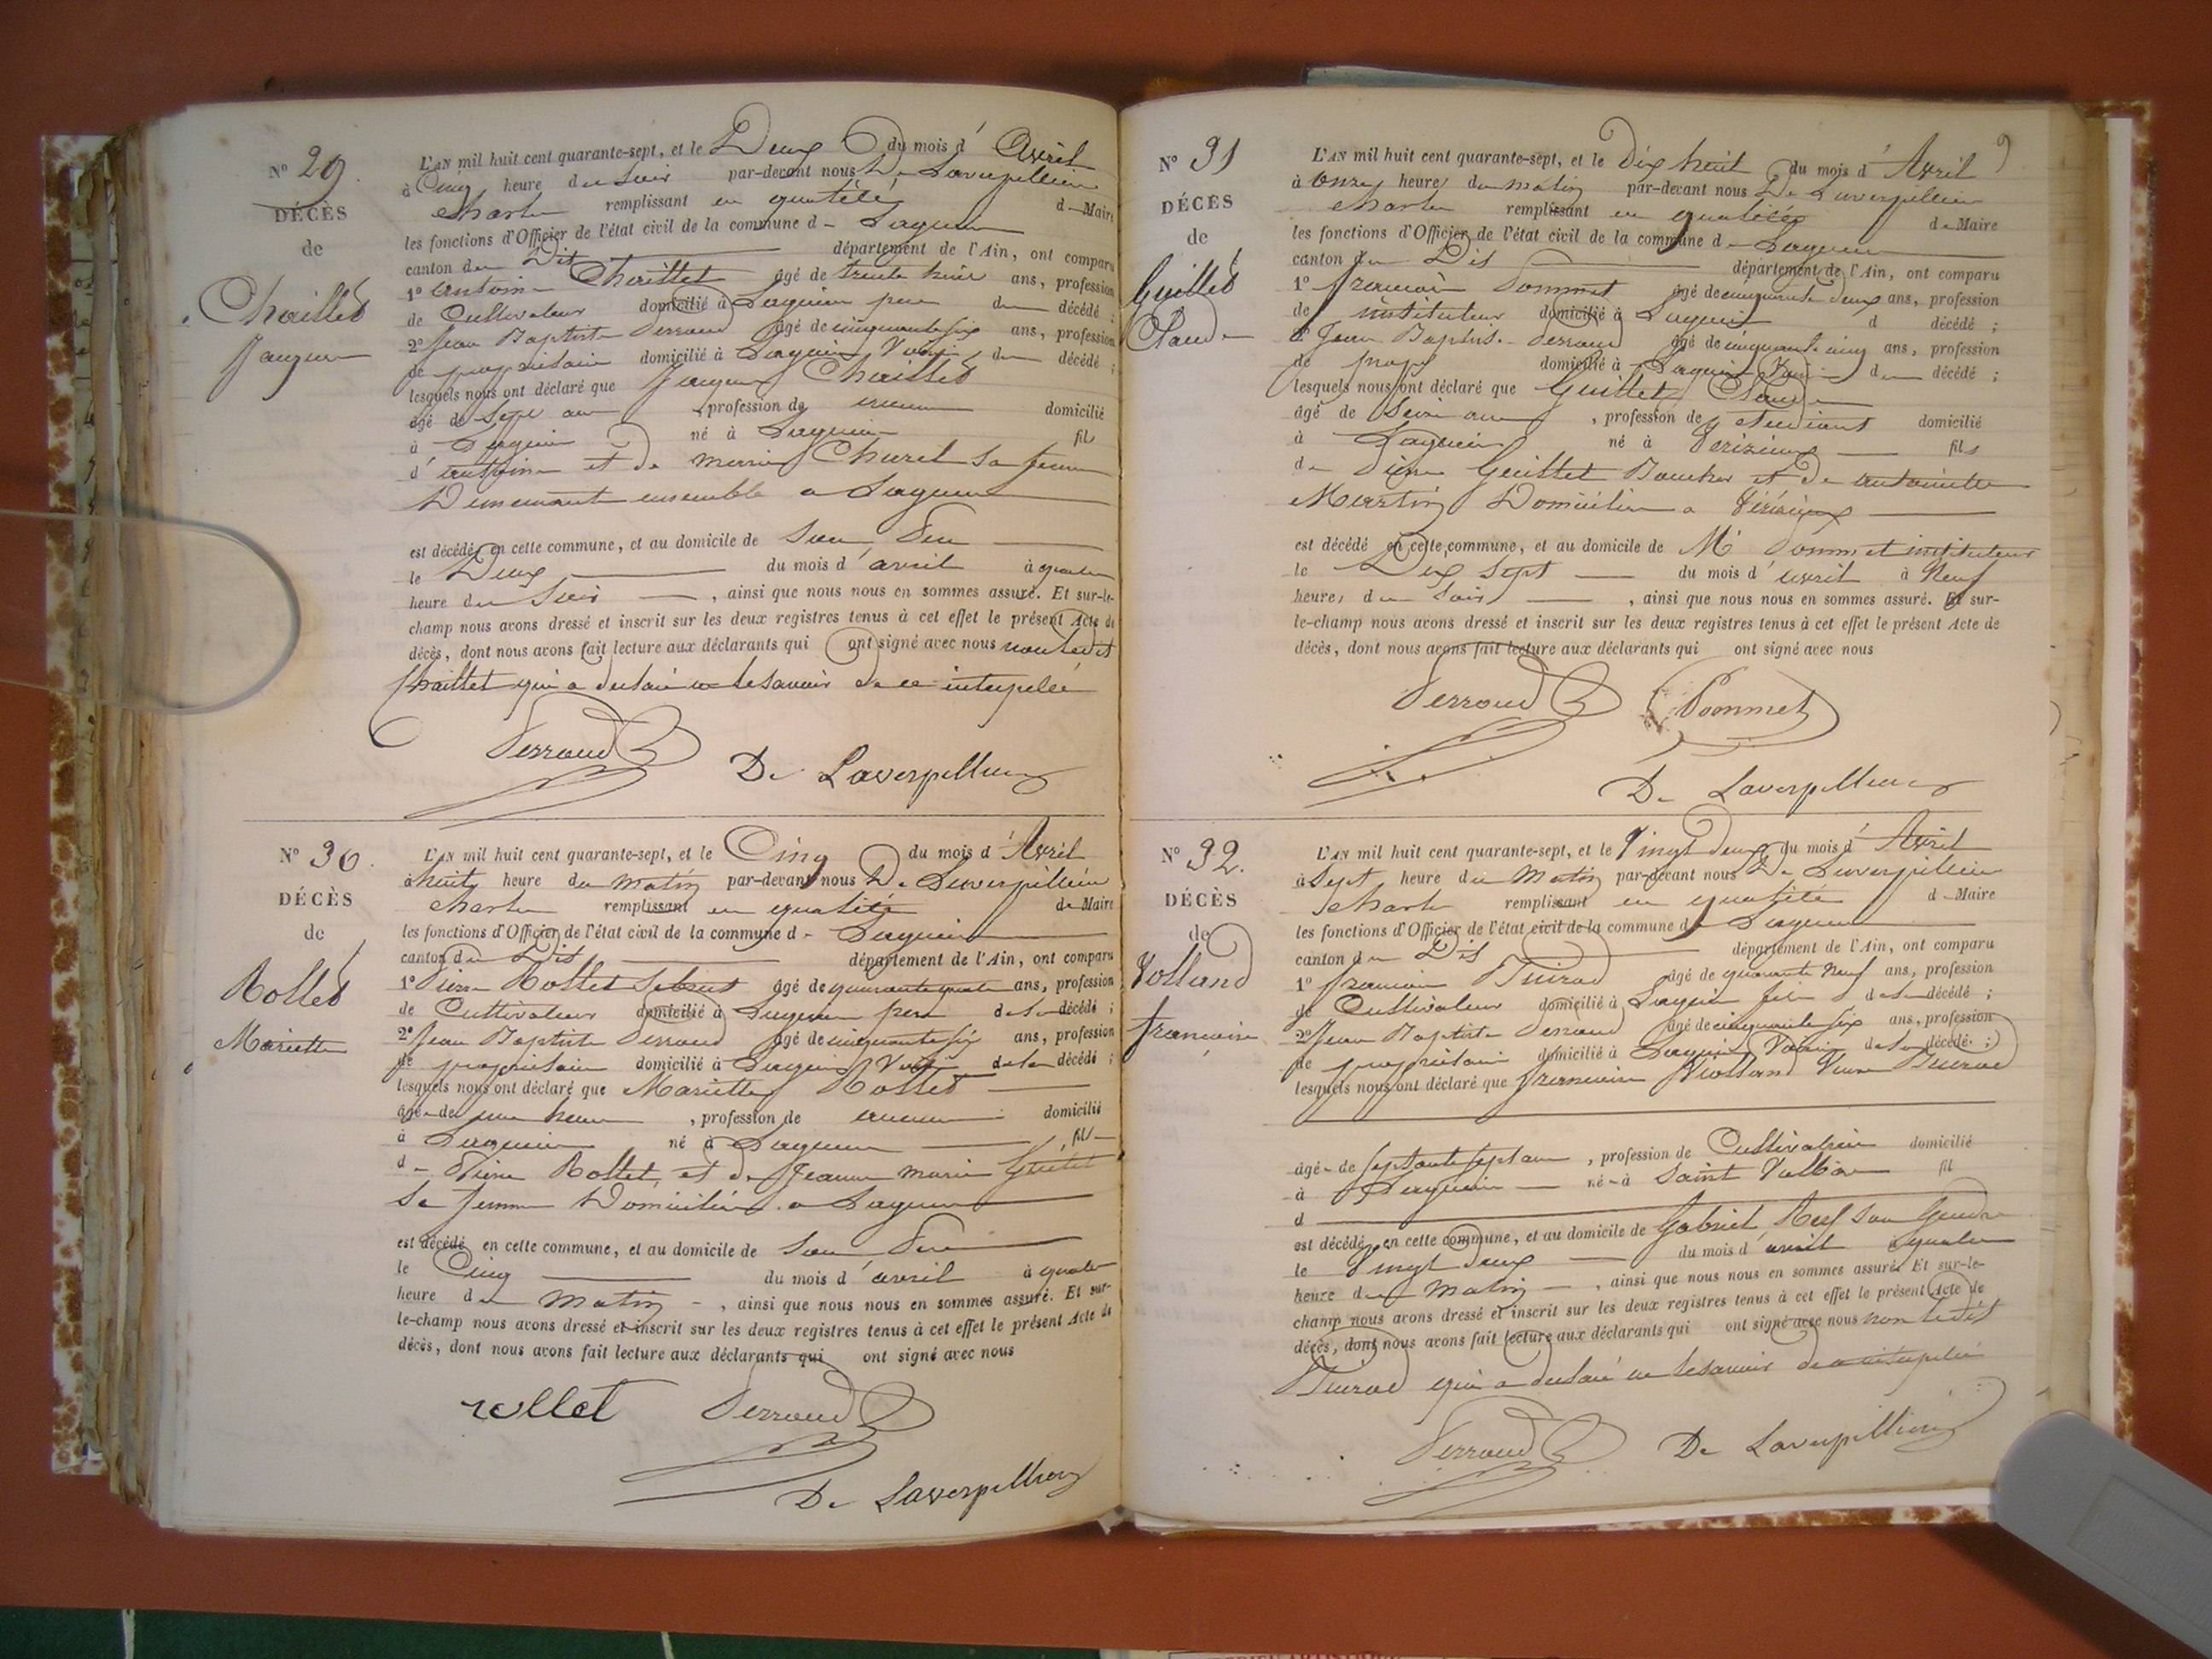 N° 29.
DÉCÈS
de
Chaillet
Jacques
L'AN mil huit cent quarante-sept, et le Deux du mois d'Avril
à Cinq heure du Soir par-devant nous De Laverpillière
Charles remplissant en qualité de Maire
les fonctions d'Officier de l'état civil de la commune d Lagnieu
canton du Dit département de l'Ain, ont comparu
1° Antoine Chaillet âgé de trente huit ans, profession
de Cultivateur domicilié à Lagnieu père du décédé ;
2° Jean Baptiste Perroud âgé de cinquante six ans, profession
de propriétaire domicilié à Lagnieu Voisin du décédé ;
lesquels nous ont déclaré que Jacques Chaillet
âgé de Sept ans , profession de aucune domicilié
à Lagnieu né à Lagnieu fils
d'antoine et de Churel sa femme
Demeurant ensemble a Lagnieu
est décédé en cette commune, et au domicile de Son Père
le Deux du mois d'avril à quatre
heure du Soir , ainsi que nous nous en sommes assuré. Et sur-le-
champ nous avons dressé et inscrit sur les deux registres tenus à cet effet le présent Acte de
décès, dont nous avons fait lecture aux déclarants qui ont signé avec nous non ledit
Chaillet qui a declaré ne le savoir de ce interpellé
Perroud
De Laverpillière
N° 30.
DÉCÈS
de
Rollet
Mariette
L'AN mil huit cent quarante-sept, et le Cinq du mois d'Avril
à huit heure du matin par-devant nous De Laverpillière
Charles remplissant en qualité de Maire
les fonctions d'Officier de l'état civil de la commune d Lagnieu
canton du Dit département de l'Ain, ont comparu
1° Pierre Rollet âgé de quarante quatre ans, profession
de Cultivateur domicilié à Lagnieu père de la décédé ;
2° Jean Baptiste Perroud âgé de cinquante six ans, profession
de propriétaire domicilié à Lagnieu Voisin de la décédé ;
lesquels nous ont déclaré que Mariette Rollet
âgée de une heure , profession de aucune domicilié
à Lagnieu né à Lagnieu fil
de Pierre Rollet et de Jeanne marie
Sa femme Domiciliés a Lagnieu
est décédé en cette commune, et au domicile de Son Père
le Cinq du mois d'avril à quatre
heure du matin , ainsi que nous nous en sommes assuré. Et sur-
le-champ nous avons dressé et inscrit sur les deux registres tenus à cet effet le présent Acte de
décès, dont nous avons fait lecture aux déclarants qui ont signé avec nous
rollet Perroud
De Laverpillière
N° 31
DÉCÈS
de
Guillet
Claude
L'AN mil huit cent quarante-sept, et le Dix huit du mois d'Avril
à Onze heures du matin par-devant nous De Laverpillière
Charles remplissant en qualité de Maire
les fonctions d'Officier de l'état civil de la commune d Lagnieu
canton du Dit département de l'Ain, ont comparu
1° françois Pommet âgé de cinquante deux ans, profession
de instituteur domicilié à Lagnieu d décédé ;
2° Jean Baptiste Perroud âgé de cinquante cinq ans, profession
de prop domicilié à Lagnieu Voisin du décédé ;
lesquels nous ont déclaré que Guillet Claude
âgé de Seize ans , profession de étudiant domicilié
à Lagnieu né à fils
de Pierre Guillet Boucher et de antoinette
Martin Domiciliés a
est décédé en cette commune, et au domicile de Mr Pommet instituteur
le Dix Sept du mois d'avril à Neuf
heures du Soir , ainsi que nous nous en sommes assuré. Et sur-
le-champ nous avons dressé et inscrit sur les deux registres tenus à cet effet le présent Acte de
décès, dont nous avons fait lecture aux déclarants qui ont signé avec nous
Perroud Pommet
De Laverpillière
N° 32.
DÉCÈS
de
Volland
françoise
L'AN mil huit cent quarante-sept, et le Vingt deux du mois d'Avril
à Sept heure du Matin par-devant nous De Laverpillière
Charles remplissant en qualité de Maire
les fonctions d'Officier de l'état civil de la commune d Lagnieu
canton du Dit département de l'Ain, ont comparu
1° françois âgé de quarante Neuf ans, profession
de Cultivateur domicilié à Lagnieu fils de la décédé ;
2° Jean Baptiste Perroud âgé de cinquante six ans, profession
de propriétaire domicilié à Lagnieu Voisin de la décédé ;
lesquels nous ont déclaré que françoise Volland Veuve
âgée de septante sept ans , profession de Cultivatrice domicilié
à Lagnieu née à Saint Vulbas fil
d
est décédé en cette commune, et au domicile de Gabriel son Gendre
le Vingt deux du mois d'avril à quatre
heure du Matin , ainsi que nous nous en sommes assuré. Et sur-le-
champ nous avons dressé et inscrit sur les deux registres tenus à cet effet le présent Acte de
décès, dont nous avons fait lecture aux déclarants qui ont signé avec nous non ledit
qui a declaré ne le savoir de ce interpellé
Perroud De Laverpillière